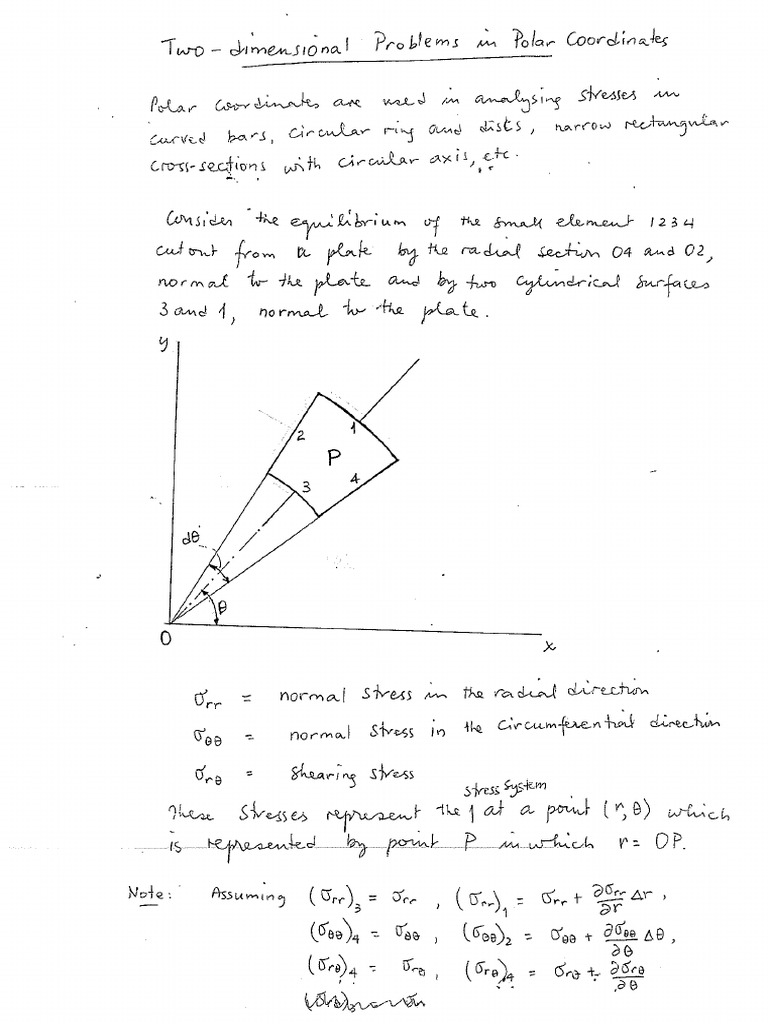 Two-dimensional Problems in Polar Coordinates
Polar coordinates are used in analysing stresses in
curved bars, circular ring and dists, narrow rectangular
cross-sections with circular axis, etc.
Consider the equilibrium of the small element 1234
cutout from a plate by the radial section 04 and 02,
normal to the plate and by two cylindrical surfaces
3 and 1, normal to the plate.
y
2
1
P
3
4
dθ
θ
O
x
σrr = normal stress in the radial direction
σθθ = normal stress in the circumferential direction
σrθ = shearing stress
stress system
These stresses represent the at a point (r,θ) which
is represented by point P in which r = OP.
Note: Assuming (σrr)₃ = σrr , (σrr)₁ = σrr + ∂σrr/∂r Δr ,
(σθθ)₄ = σθθ , (σθθ)₂ = σθθ + ∂σθθ/∂θ Δθ ,
(σrθ)₄ = σrθ , (σrθ)₄ = σrθ + ∂σrθ/∂θ